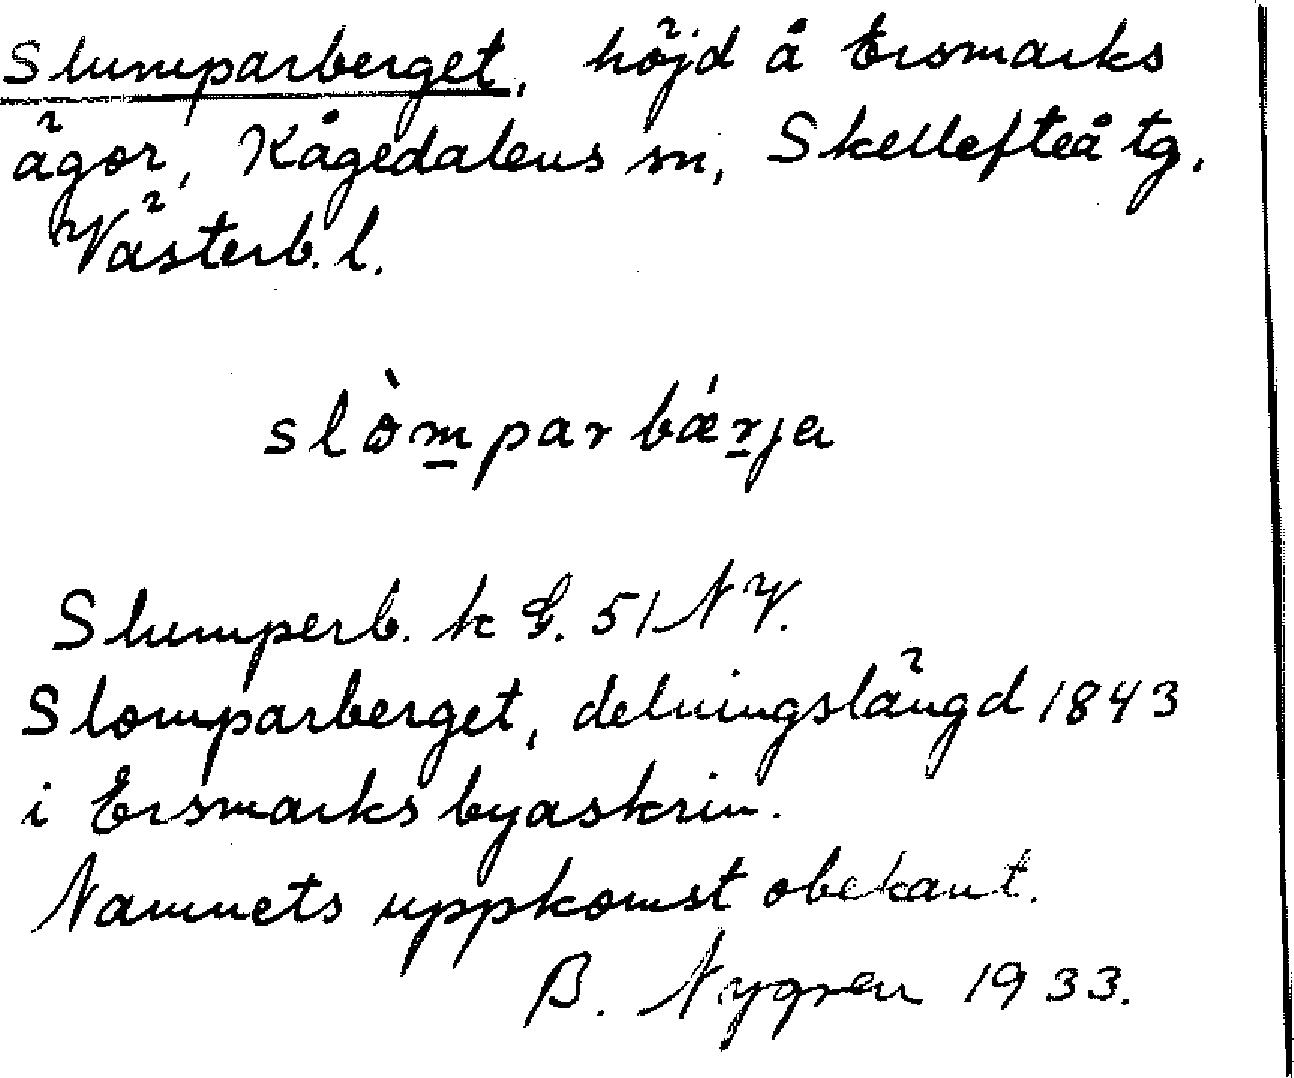 Slumparberget, höjd å Ersmarks
ägor, Kågedalens sn, Skellefteå tg,
Västerb. l.
slòm̲parbǽr̲ja
Slumperb. k G. 51 NV.
Slomparberget, delningslängd 1843
i Ersmarks byaskrin.
Namnets uppkomst obekant.
B. Nygren 1933.